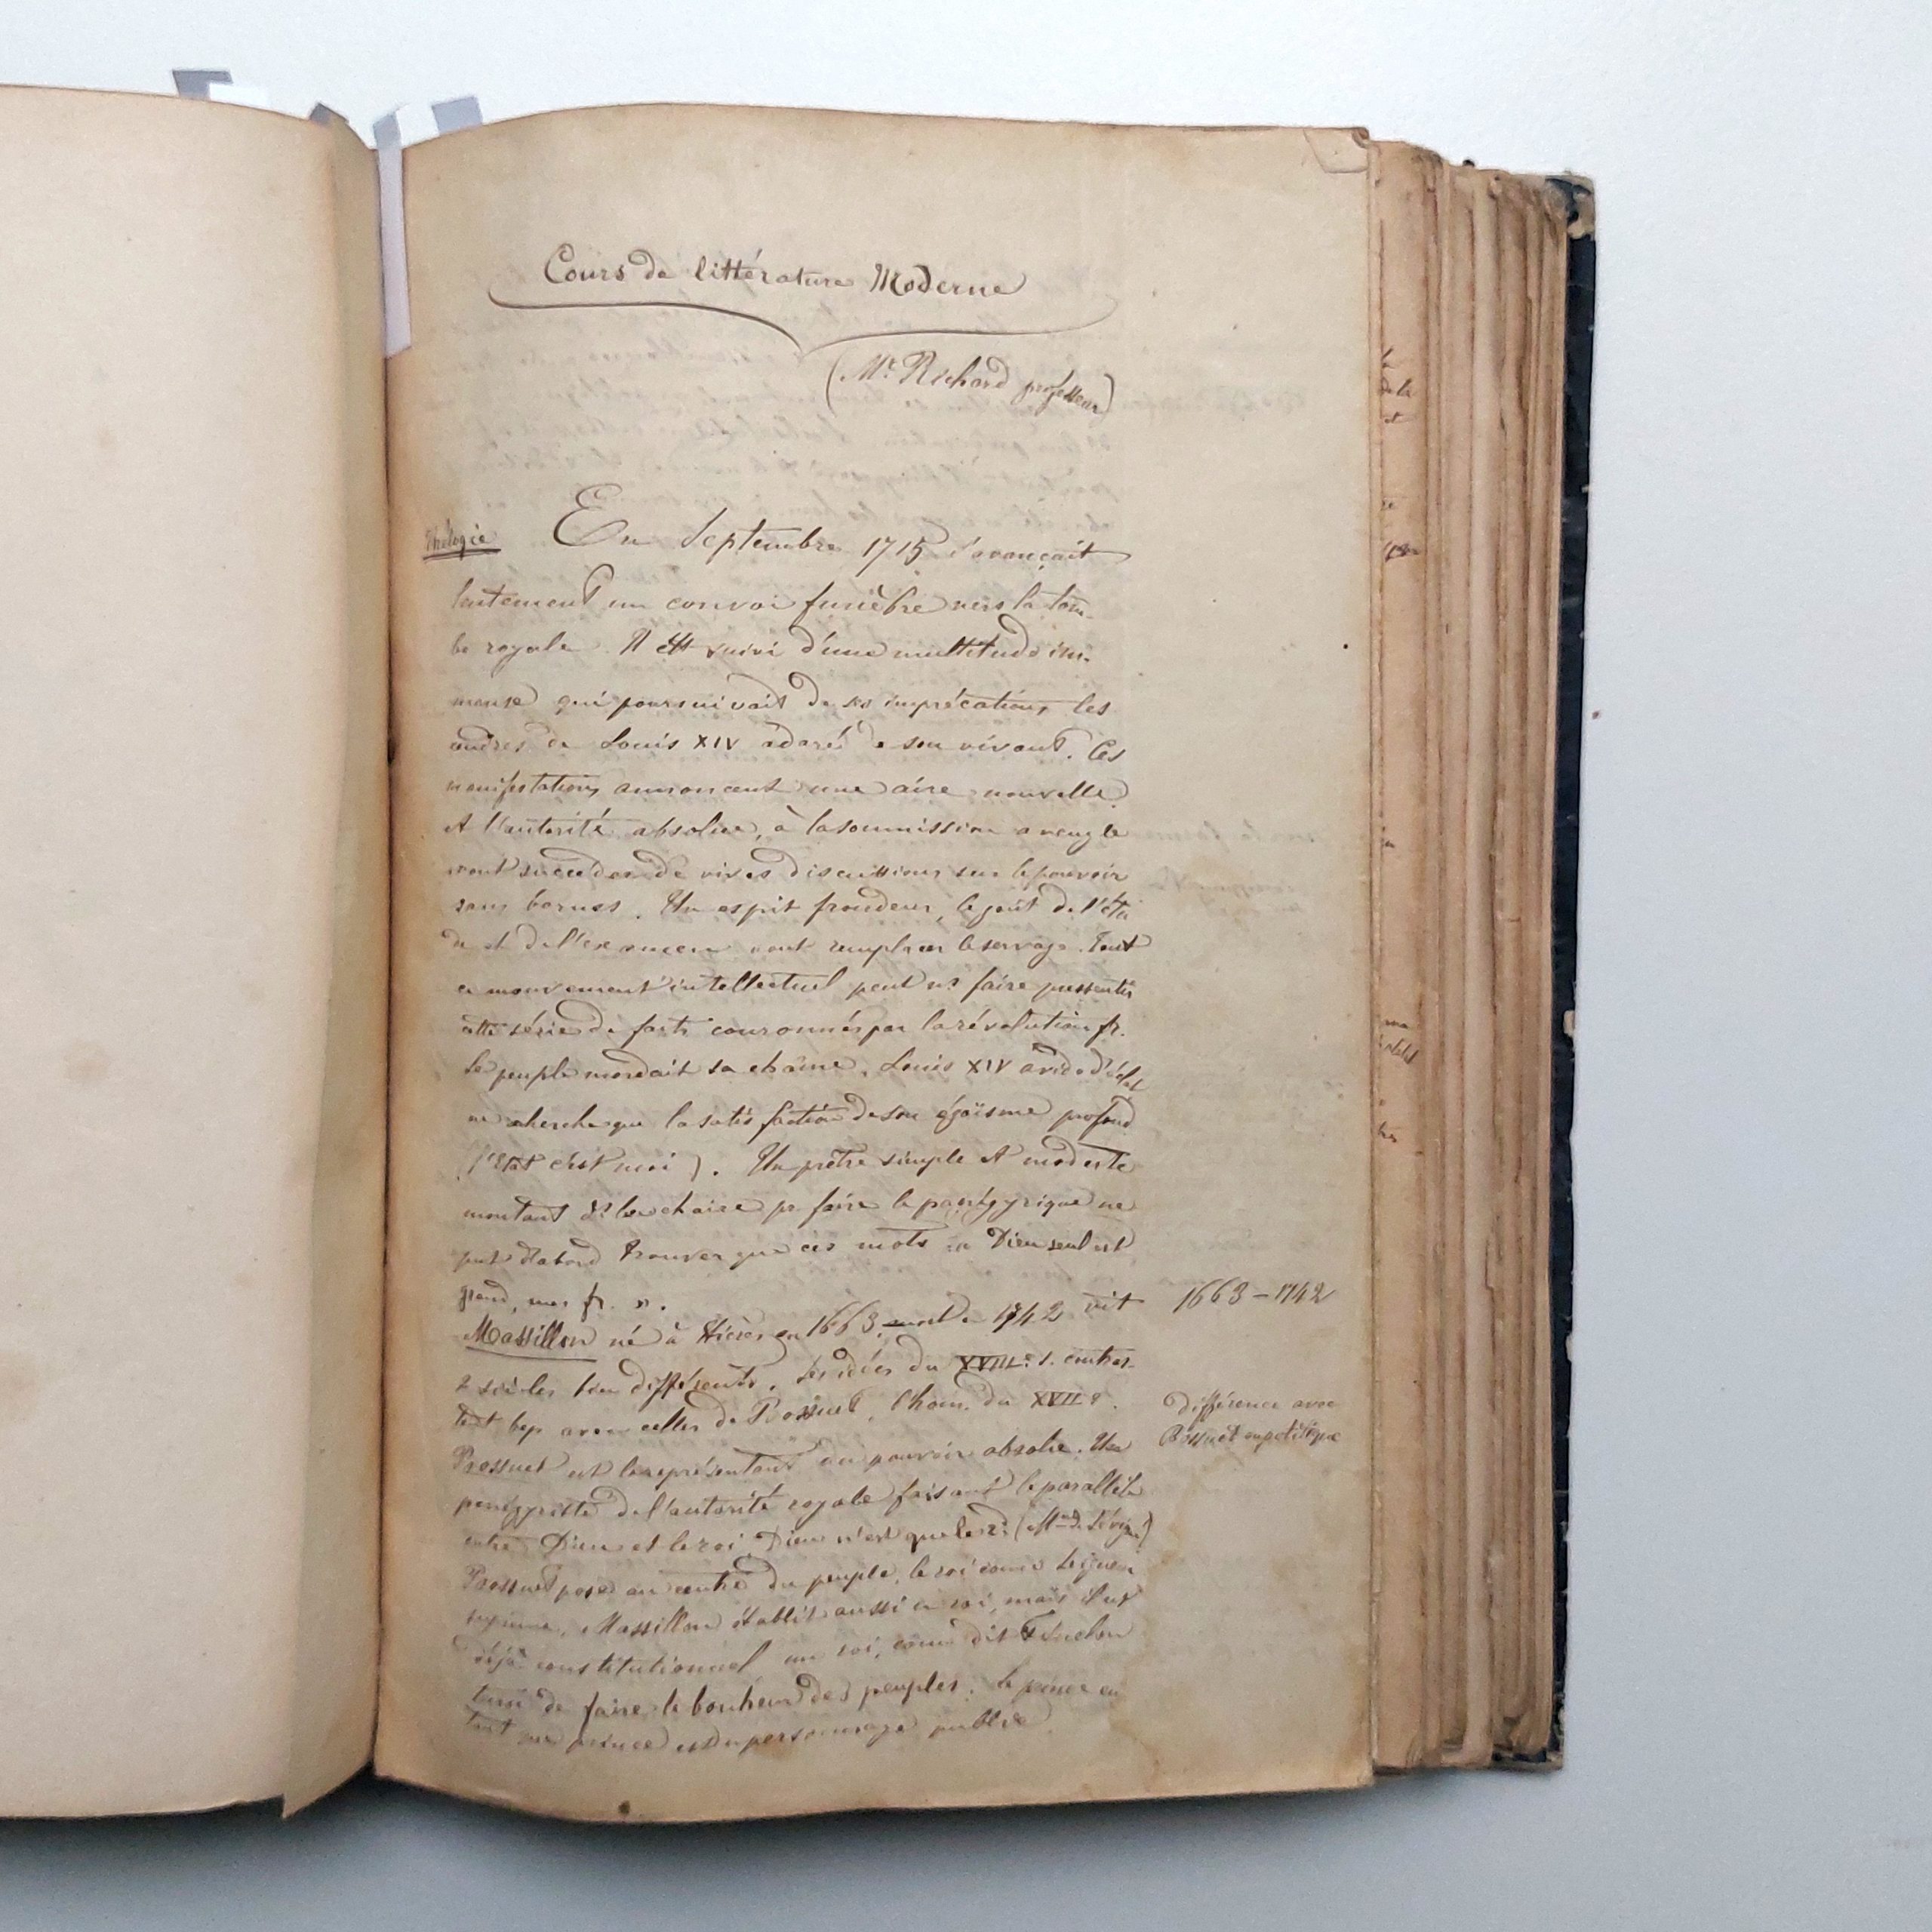 Cours de littérature Moderne
(Mr. Richard professeur)
Théologie
En Septembre 1715 s'avançait
lentement un convoi funèbre vers la tom-
be royale. Il est suivi d'une multitude im-
mense qui poursuivait de ses imprécations les
cendres de Louis XIV adoré de son vivant. Ces
manifestations annoncent une aire nouvelle.
A l'autorité absolue, à la soumission aveugle
vont succéder de vives discussions sur le pouvoir
sans bornes. Un esprit frondeur, le goût de l'étu
de et de l'examen vont remplacer le servage. Tout
ce mouvement intellectuel peut ns faire pressentir
cette série de faits couronnés par la révolution fr.
Le peuple mordait sa chaîne, Louis XIV avide d'éclat
ne cherche que la satisfaction de son égoïsme profond
(l'Etat c'est moi). Un prêtre simple et modeste
montant ds la chaire pr faire le panégyrique ne
put d'abord trouver que ces mots « Dieu seul est
grand, mes fr. ».
Massillon né à Hières en 1663, mort en 1742 vit
1663 – 1742
2 siècles bien différents. Les idées du XVIIIe s. contras-
tent bcp avec celles de Bossuet, l'hom. du XVIIe.
Différence avec
Bossuet en politique
Bossuet est le représentant du pouvoir absolu. Un
panégyriste de l'autorité royale faisant le parallèle
entre Dieu et le roi Dieu n'est que le 2d (Mme de Sévigné)
Bossuet pose au centre du peuple, le roi come
suprême, Massillon établit aussi un roi, mais il est
déjà constitutionnel, un roi, come dit Fénelon
tenu de faire le bonheur des peuples. Le prince en
tant que prince est un personnage public